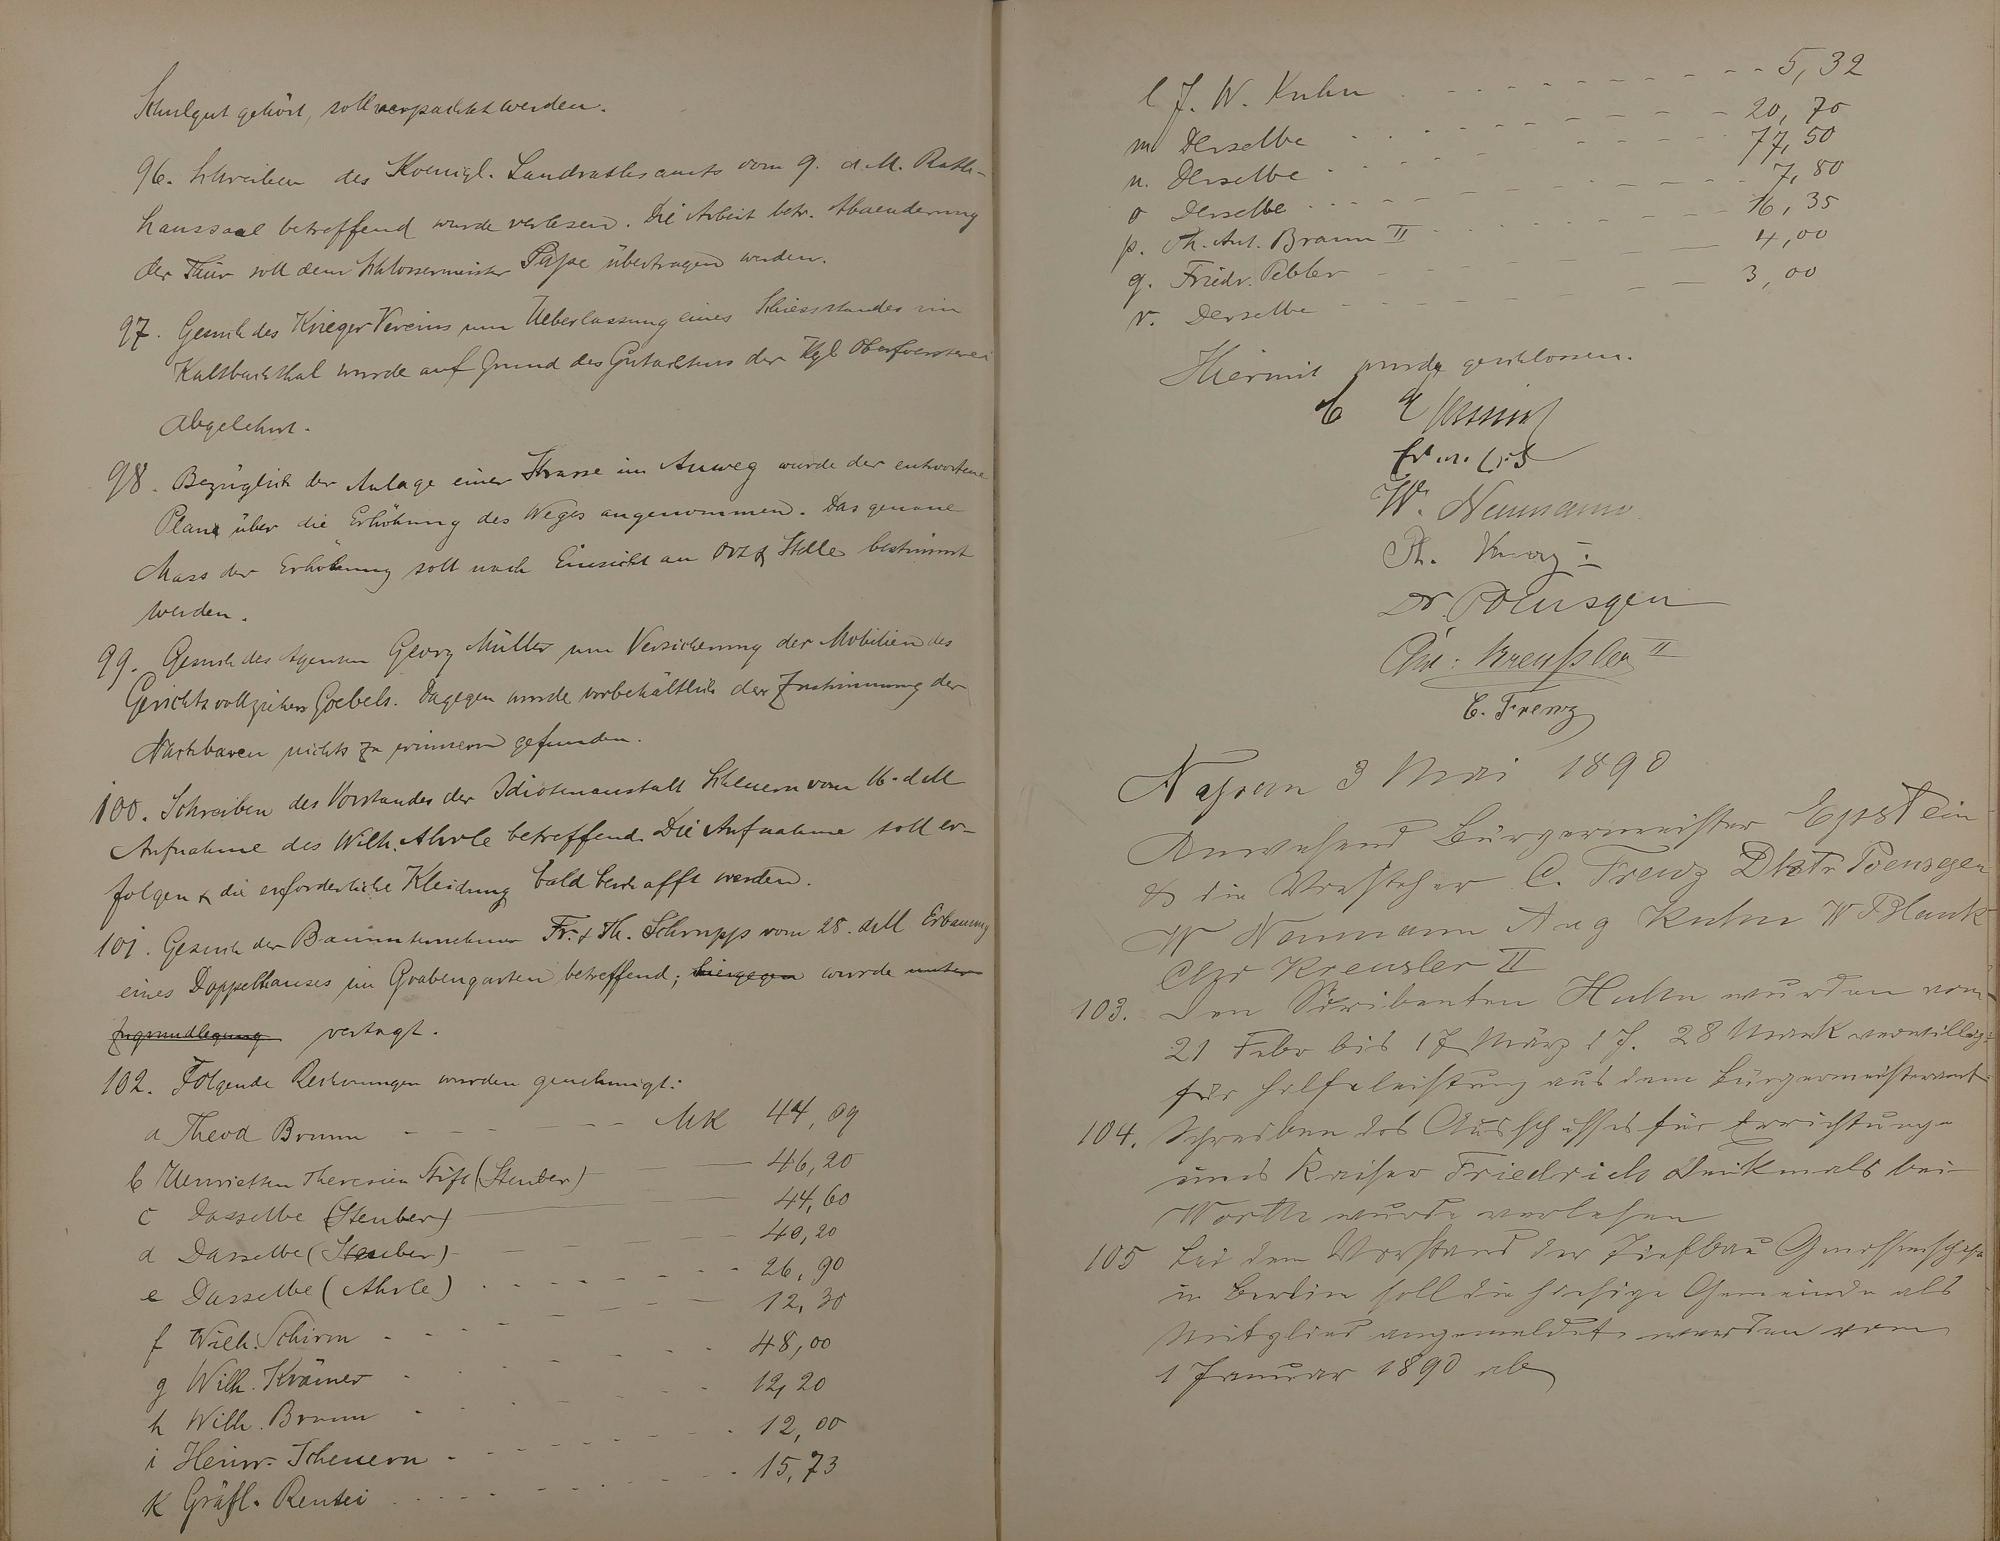 Schulgut gehört, soll verpachtet werden.
96. Schreiben des Koenigl. Landrathsamts vom 9. d. M. Rath-
haussaal betreffend wurde verlesen. Die Arbeit betr. Abaenderung
der Thür soll dem Schlossermeister Pape übertragen werden.
97. Gesuch des Krieger Vereins um Ueberlassung eines Schiesstandes im
Kaltbachthal wurde auf Grund des Gutachtens der Kgl Oberfoersterei
abgelehnt.
98. Bezüglich der Anlage einer Strasse im Auweg wurde der entworfene
Plan über die Erhöhung des Weges angenommen. Das genaue
Mass der Erhöhung soll nach Einsicht an Ort & Stelle bestimmt
werden.
99. Gesuch des Agenten Georg Müller um Versicherung der Mobilien des
Gerichtsvollziehers Goebels. Dagegen wurde vorbehältlich der Zustimmung der
Nachbaren nichts zu erinnern gefunden.
100. Schreiben des Vorstandes der Idiotenanstalt Scheuern vom 16. d M
Aufnahme des Wilh. Ahrle betreffend. Die Aufnahme soll er-
folgen & die erforderliche Kleidung bald beschafft werden.
101. Gesuch der Bauunternehmer Fr. & Th. Schrupp vom 28. d M Erbauung
eines Doppelhauses im Grabengarten betreffend; hiergegen wurde unter
Zugrundlegung vertagt.
102. Folgende Rechnungen wurden genehmigt:
a Theod Bruun MK 44,09
b Henrietten Theresien Stift (Steuber) 46,20
c Dasselbe (Steuber) 44,60
d Dasselbe (Steuber) 40,20
e Dasselbe (Ahrle) 26,90
f Wilh. Schirm 12,30
g Wilh. Krämer 48,00
h Wilh. Bruun 12,20
i Heinr. Scheuern 12,00
K Gräfl. Rentei 15,73
l J. W. Kuhn 5,32
m Derselbe 20,70
n. Derselbe 77,50
o Derselbe 7,80
p. Ph. Ant. Braun II 16,35
q. Friedr. Pebler 4,00
r. Derselbe 3,00
Hiermit wurde geschlossen.
W. Neumann
Ph.
Dr. Poensgen
Chr: Kreußler II
C. Frenz
Nassau 3 Mai 1890
Anwesend Bürgermeister Epstein
& die Vorsteher C. Frenz Dktr Poensgen
W Neumann Aug Kuhn W Blank
Chr Kreusler II
103. Den Scribenten Huhn wurden vom
21 Febr bis 17 März d J. 28 Mark verwilligt
für Hülfeleistung auf dem Bürgermeisteramt
104. Schreiben des Ausschusses für Errichtung
eines Kaiser Friedrich Denkmals bei
Woerth wurde verlesen
105 Bei dem Vorstand der Tiefbau Genossenschaft
in Berlin soll die hiesige Gemeinde als
Mitglied angemeldet werden vom
1 Januar 1890 ab